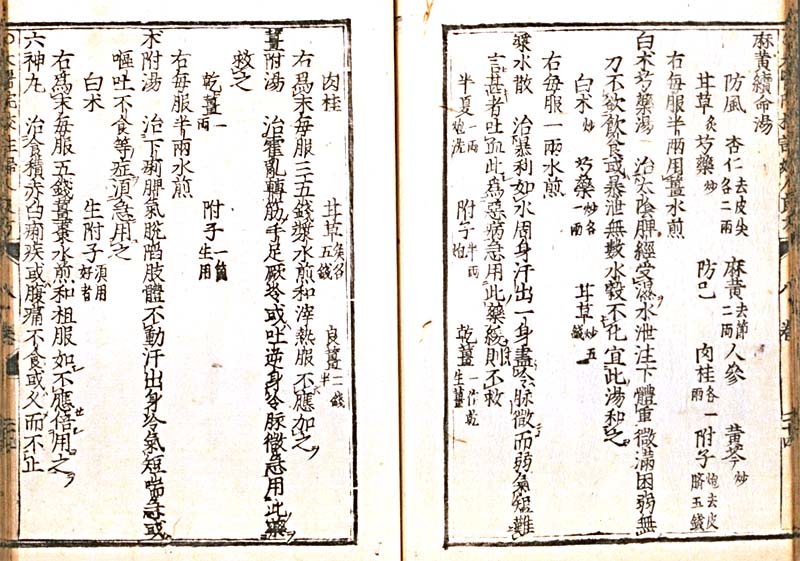 麻黄續命湯
防風 杏仁去皮尖各二兩 麻黄去節二兩 人參 黄芩炒
甘草炙 芍藥炒 防已 肉桂各一兩 附子炮去皮臍五錢
右每服半兩用薑水煎
白朮芍藥湯 治太陰脾經受濕水泄注下體重微滿困弱無
力不欲飲食或暴泄無數水穀不化宜此湯和之
白朮炒 芍藥炒各一兩 甘草炒五錢
右每服一兩水煎
漿水散 治暴利如水周身汗出一身盡冷脉微而弱氣短難
言甚者吐此為惡病急用此藥緩則不救
半夏一兩炮洗 附子半兩炮 乾薑一作乾生薑
肉桂 甘草炙各五錢 良薑二錢半
右爲末每服三五錢漿水煎和滓熱服不應加之
薑附湯 治霍亂轉筋手足厥冷或吐逆身冷脉微急用此藥
救之
乾薑一兩 附子一箇生用
右每服半兩水煎
朮附湯 治下痢脾氣脱陷肢體不動汗出身冷氣短喘急或
嘔吐不食等症須急用之
白朮 生附子須用好者
右爲末每服五錢薑棗水煎和粗服如不應倍用之
六神丸 治食積赤白痢疾或腹痛不食或久而不止